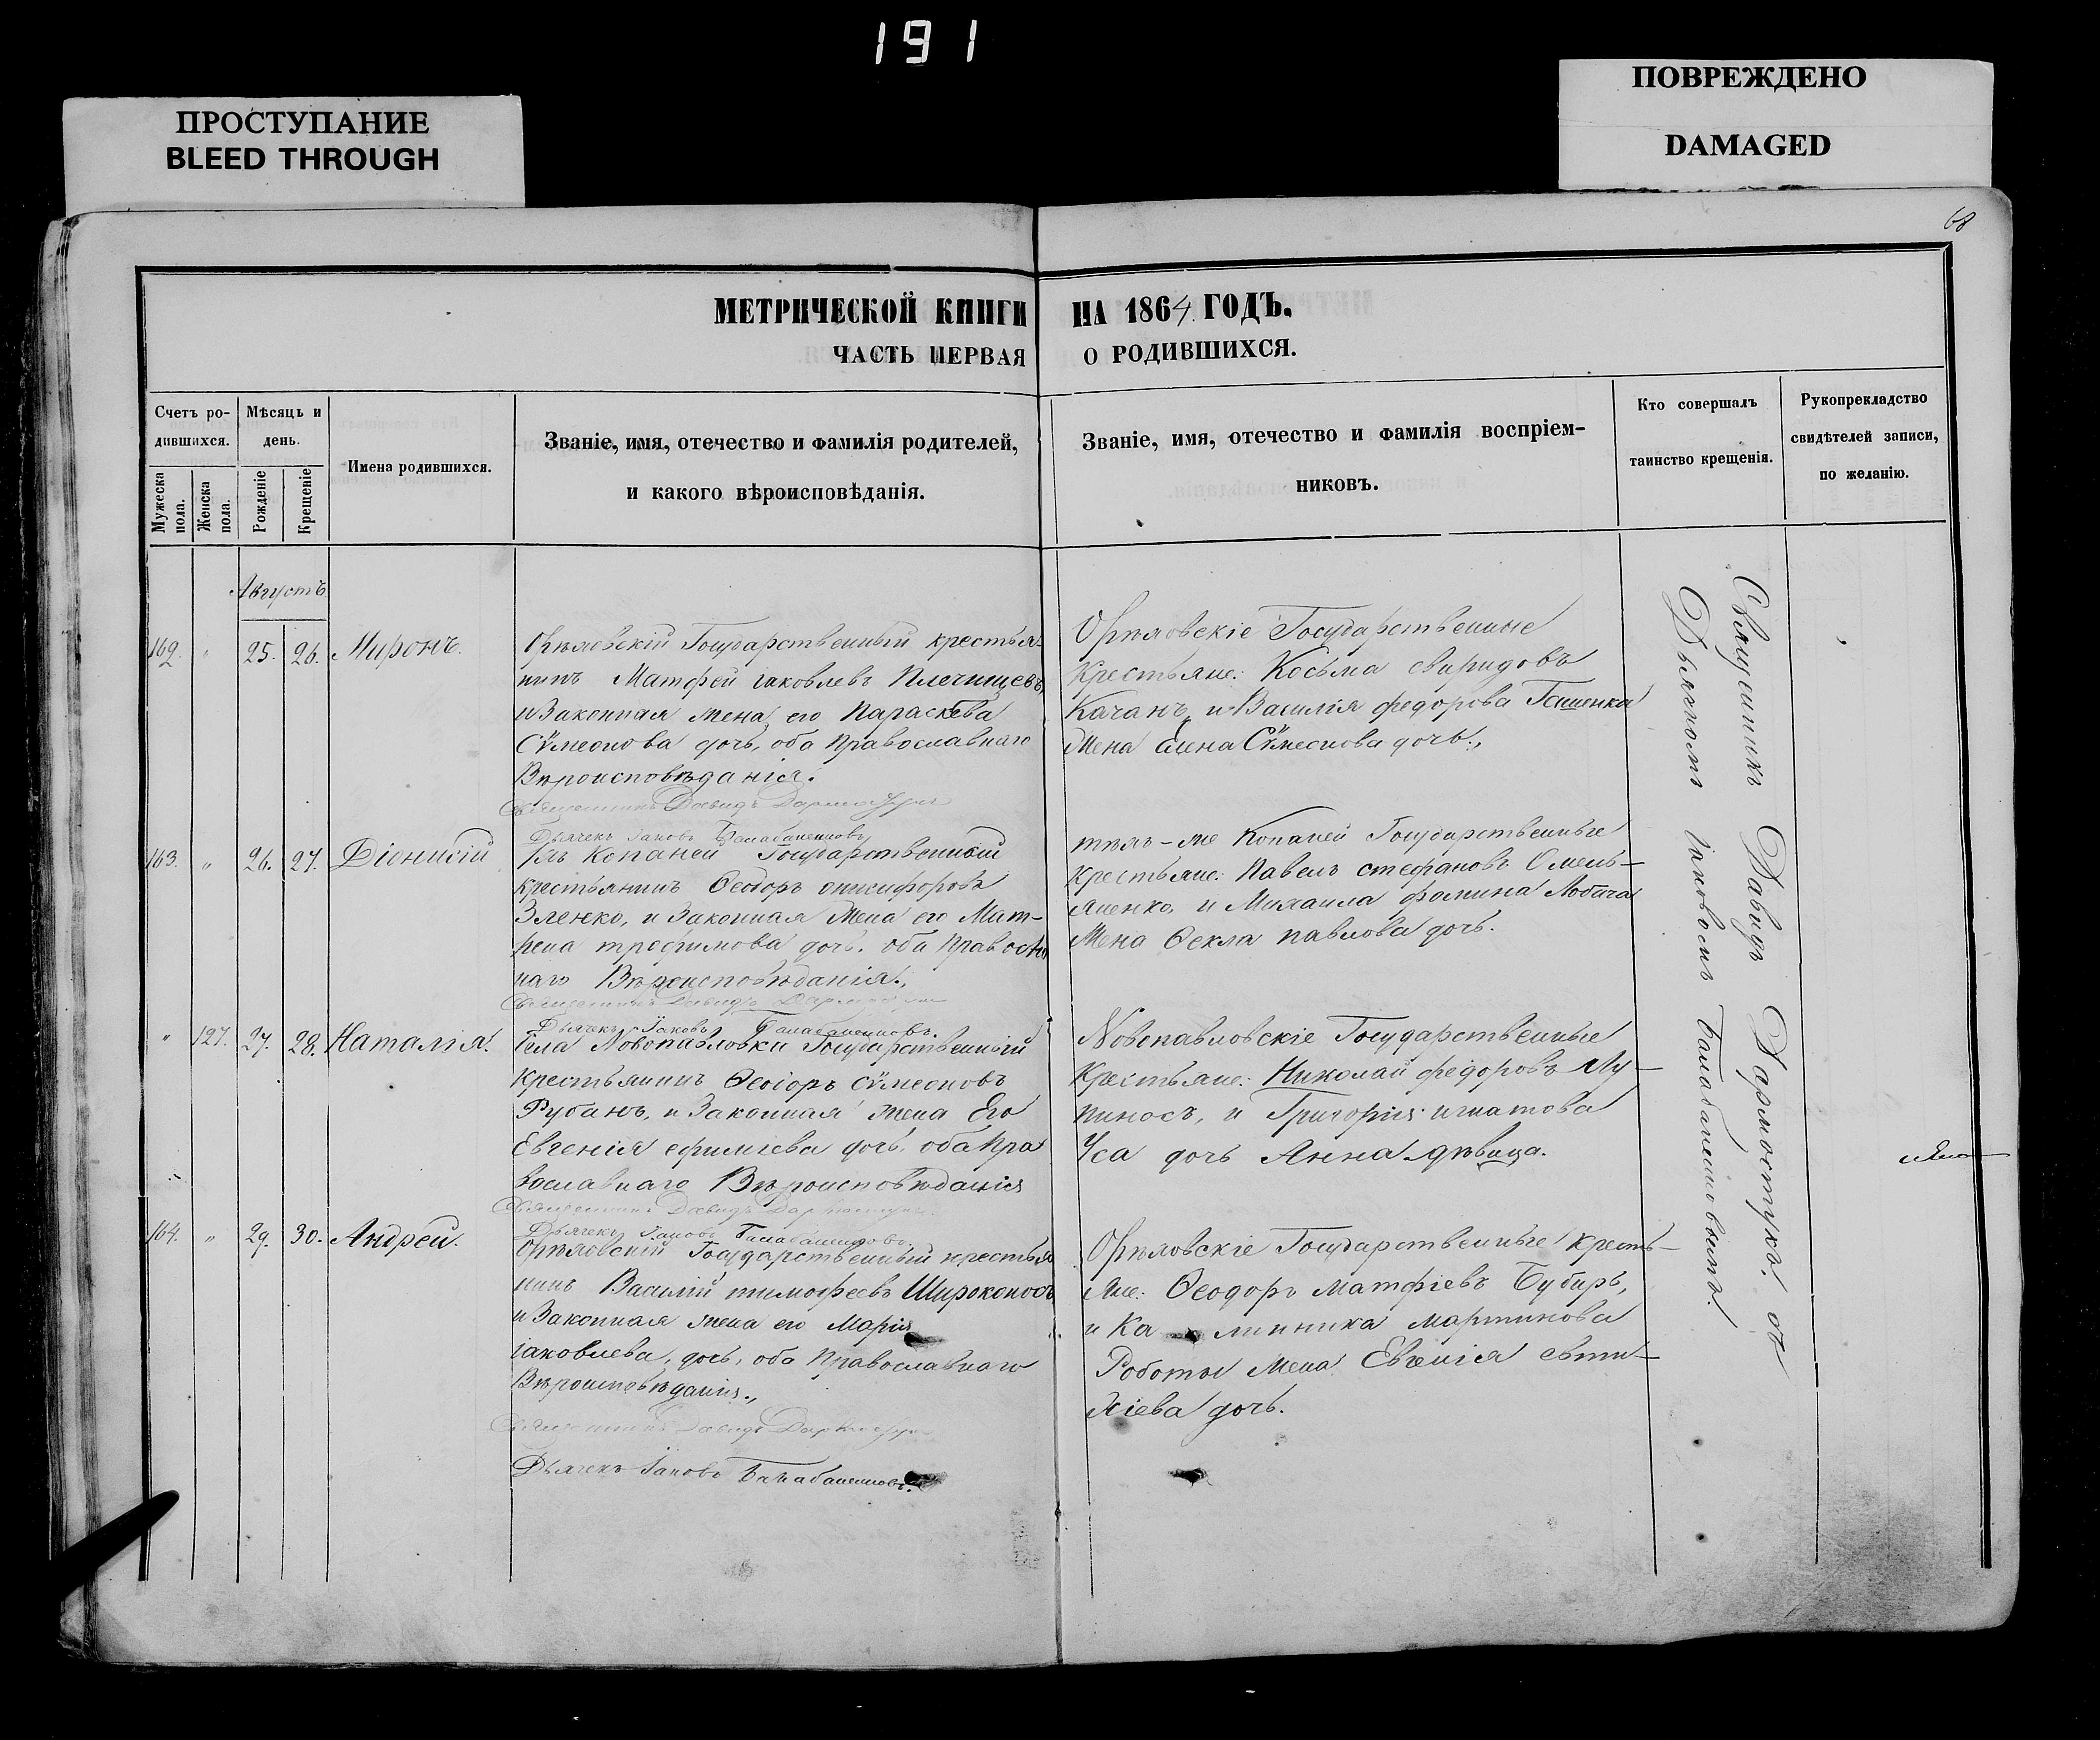 191
ПРОСТУПАНИЕ
BLEED THROUGH
ПОВРЕЖДЕНО
DAMAGED
68
МЕТРИЧЕСКОЙ КНИГИ НА 1864 ГОДЪ.
ЧАСТЬ ПЕРВАЯ О РОДИВШИХСЯ.
Счетъ ро-
дившихся.
Мужеска
пола.
Женска
пола.
Мѣсяцъ и
день.
Рожденіе
Крещеніе
Имена родившихся.
Званіе, имя, отечество и фамилія родителей,
и какого вѣроисповѣданія.
Званіе, имя, отечество и фамилія воспріем-
никовъ.
Кто совершалъ
таинство крещенія.
Рукопрекладство
свидѣтелей записи,
по желанію.
Августъ
162. " 25. 26. Миронъ.
Орѣховскій Государственный крестья-
нинъ Матфей іаковлевъ Плечищевъ
и Законная жена его Параскева
Сѵмеонова дочь, оба православнаго
Вѣроисповѣданія.
Священникъ Давидъ
Дьячекъ Іаковъ Балабаненковъ
Орѣховскіе Государственные
крестьяне: Косьма свиридовъ
Качанъ, и Василія федорова
жена Елена Сѵмеонова дочь.,
163. " 26. 27. Діонисій
Копаней Государственный
крестьянинъ Ѳеодоръ
Зленко, и Законная жена его Мат-
рена трофимова дочь. оба правосла
наго Вѣроисповѣданія.,
Священникъ Давидъ
Дьячекъ Іаковъ Балабаненковъ.
тѣхъ-же Копаней Государственные
крестьяне: Павелъ стефановъ Омель-
яненко, и Михаила фомина
жена Ѳекла павлова дочь.
" 127. 27. 28. Наталія.
Села Новопавловки Государственный
крестьянинъ Ѳеодоръ сѵмеоновъ
Рубанъ, и Законная жена Его
Евгенія ефиміева дочь, оба пра
вославнаго Вѣроисповѣданія
Священникъ Давидъ
Дьячекъ Іаковъ Балабаненковъ.
Новопавловскіе Государственные
крестьяне: Николай федоровъ Лу-
пиносъ, и Григорія игнатова
Уса дочь Анна дѣвица.
164. " 29. 30. Андрей.
Орѣховскій Государственный крестья
нинъ Василій тимофеевъ Широконосъ
и Законная жена его Марія
іаковлева, дочь, оба Православнаго
Вѣроисповѣданія.,
Священникъ Давидъ
Дьячекъ Іаковъ Балабаненковъ.
Орѣховскіе Государственные кресть-
яне: Ѳеодоръ матфіевъ Бубиръ,
и Ка линника мартинова
Роботы жена Евгенія евти-
хіева дочь.
Священникъ Давидъ съ
Дьячкомъ Іаковомъ Балабаненковымъ.